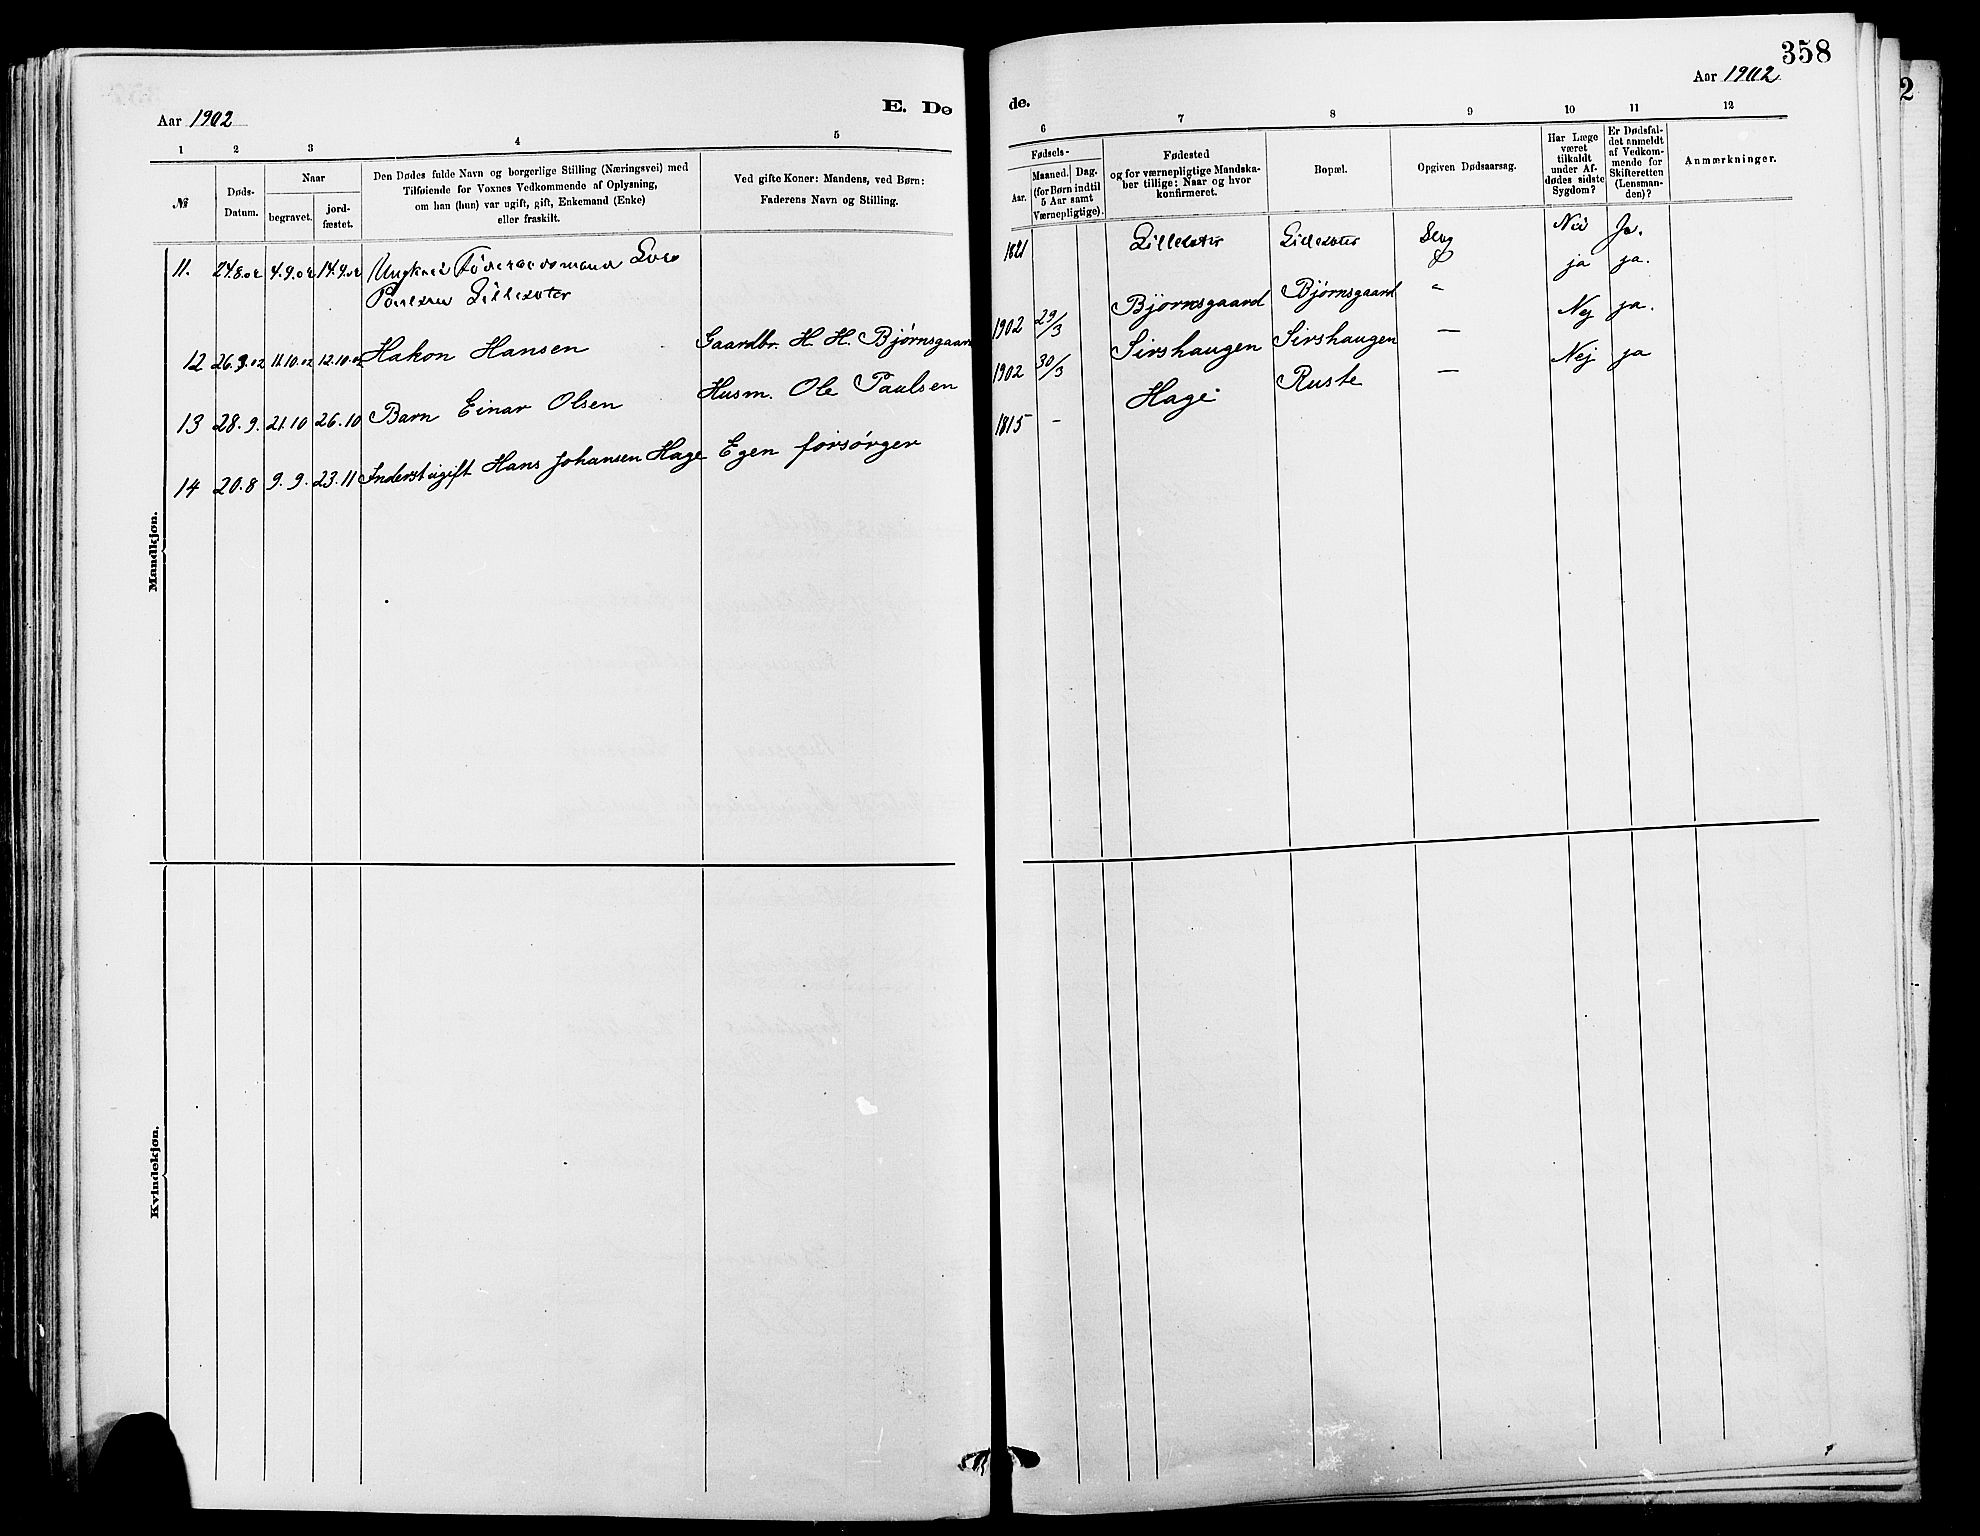 358
Aar 1902
E. Dø
de.
Aar 1902
1 2 3 4 5
6 7 8 9 10 11 12
№
Døds-
Datum.
Naar
begravet.
jord-
fæstet.
Den Dødes fulde Navn og borgerlige Stilling (Næringsvei) med
Tilføiende for Voxnes Vedkommende af Oplysning,
om han (hun) var ugift, gift, Enkemand (Enke)
eller fraskilt.
Ved gifte Koner: Mandens, ved Børn:
Faderens Navn og Stilling.
Fødsels-
Aar.
Maaned. Dag.
(for Børn indtil
5 Aar samt
Værnepligtige).
Fødested
og for værnepligtige Mandska-
ber tillige: Naar og hvor
konfirmeret.
Bopæl.
Opgiven Dødsaarsag.
Har Læge
været
tilkaldt
under Af-
dødes sidste
Sygdom?
Er Dødsfal-
det anmeldt
af Vedkom-
mende for
Skifteretten
(Lensman-
den)?
Anmærkninger.
Mandkjøn.
11. 24.8.02 4.9.02 14.9.02 Ungkarl Føderaadsmand
Lillesæter
1821 Lillesæter Lillesæter Slag Nei Ja.
12 26.9.02 11.10.02 12.10.02 Hakon Hansen Gaardbr. H. H. Bjørnsgaard
1902 29/3 Bjørnsgaard Bjørnsgaard ja ja.
13 28.9. 21.10 26.10 Barn Einar Olsen Husm. Ole Paulsen
1902 30/3 Sirshaugen Sirshaugen — Nej ja.
14 20.8 9.9. 23.11 Inderst ugift Hans Johansen Hage Egen forsørger
1815 - Hage Ruste — Nej ja
Kvindekjøn.
2